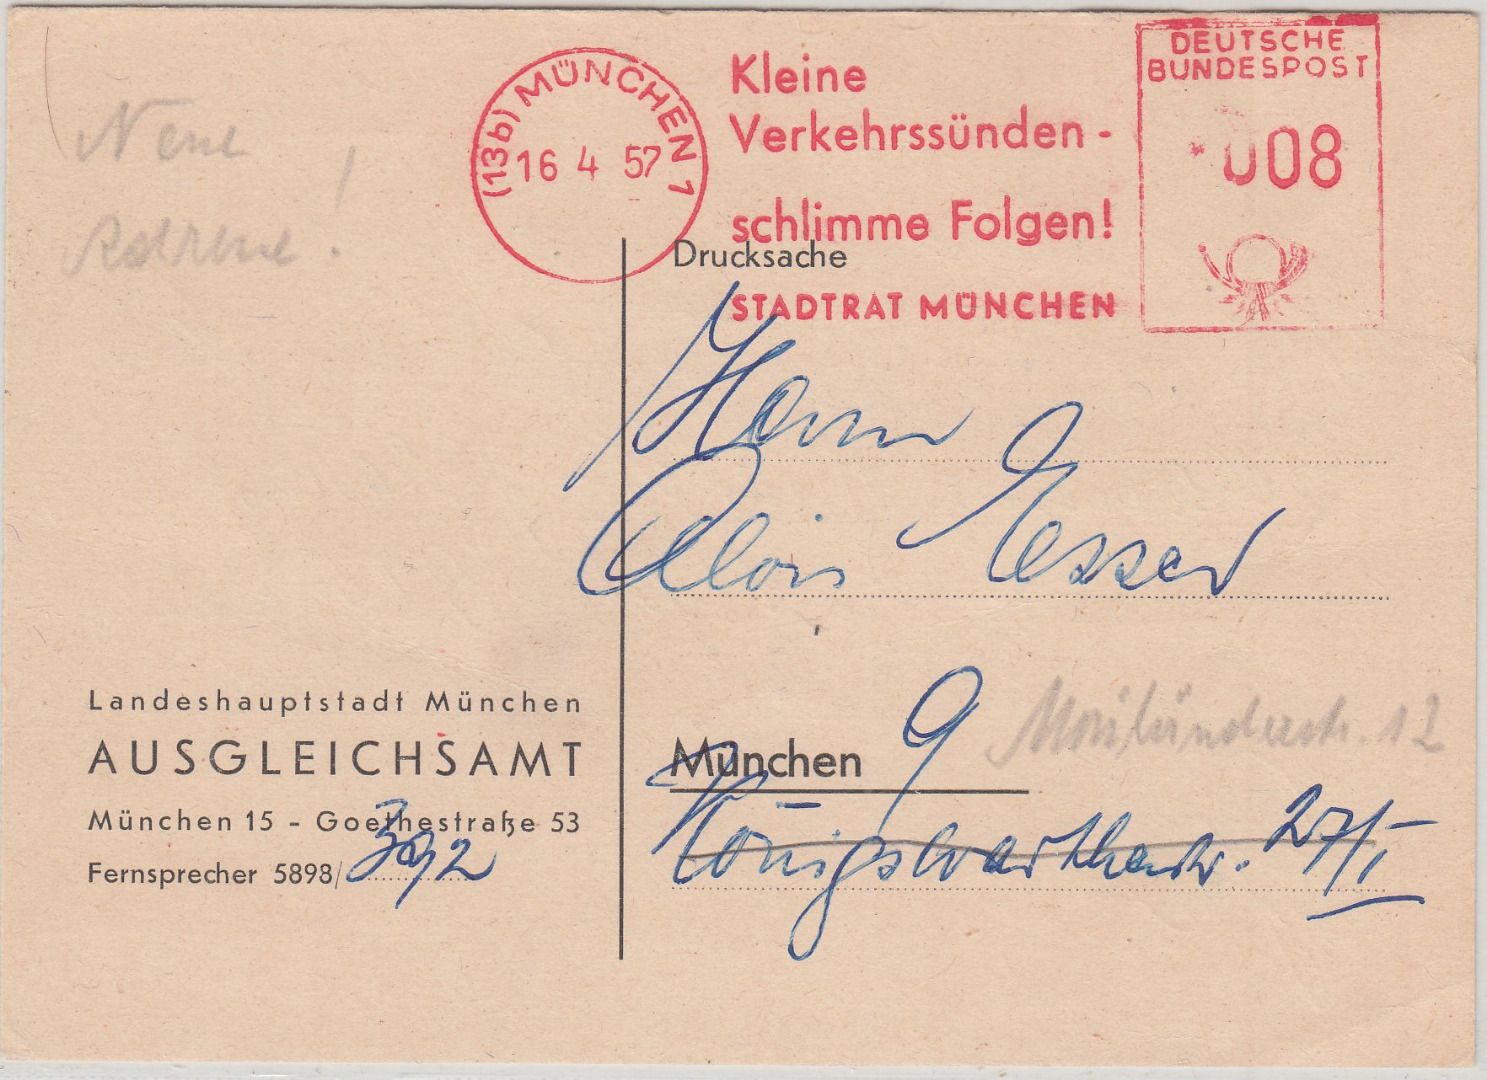 (13b) MÜNCHEN 1
16 4 57
Kleine
Verkehrssünden -
schlimme Folgen!
STADTRAT MÜNCHEN
DEUTSCHE
BUNDESPOST
008
Neue
Adresse !
Drucksache
Herrn
Alois Esser
München 9
Königswarterstr. 27/I
Landeshauptstadt München
AUSGLEICHSAMT
München 15 - Goethestraße 53
Fernsprecher 5898/